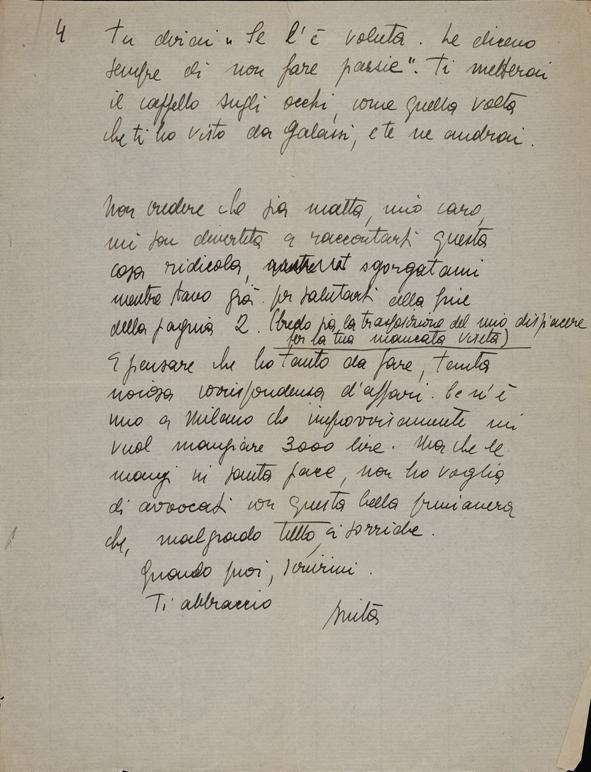 4
Tu dirai "Se l'è voluta. Le dicevo
sempre di non fare pazzie". Ti metterai
il cappello sugli occhi, come quella volta
che ti ho visto da Galassi, e te ne andrai.
Non credere che sia matta, mio caro,
mi son divertita a raccontarti questa
cosa ridicola, sgorgatami
mentre stavo già per salutarti alla fine
della pagina 2. (Credo sia la trasposizione del mio dispiacere
per la tua mancata visita)
E pensare che ho tanto da fare, tanta
noiosa corrispondenza d'affari. Ce n'è
uno a Milano che improvvisamente mi
vuol mangiare 3000 lire. Ma che le
mangi in santa pace, non ho voglia
di avvocati con questa bella primavera
che, malgrado tutto, ci sorride.
Quando puoi, scrivimi.
Ti abbraccio